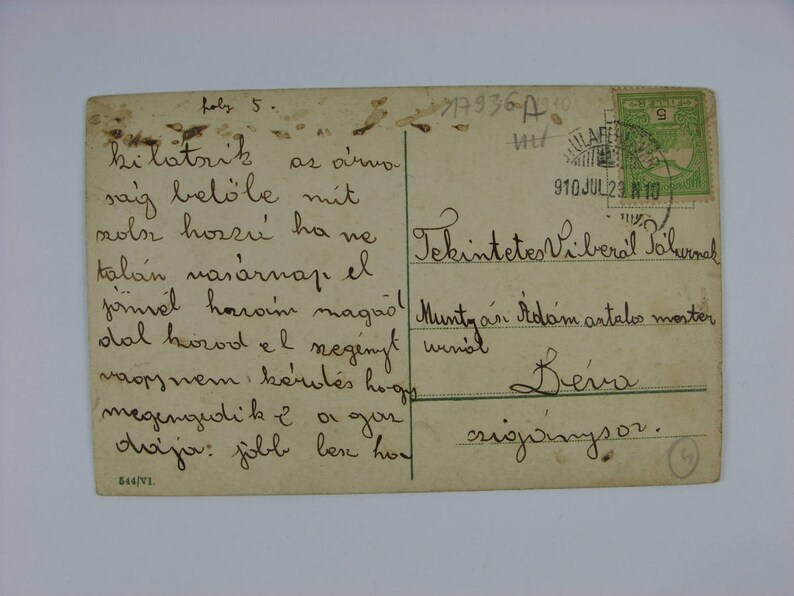 foly 5.
kilatszik az árva
ság belőle mit
szolsz hozzá ha ne
talán vasárnap el
jönnél hozzám magad
dal hozod el szegényt
vagysnem kérdés hogy
megengedik é a gaz
dája: jobb lesz ha
544/VI.
17936 A
5
910 JUL 29 N 10
Tekintetes Viberál Pálurnak
Muntyási Ádám asztalos mester
urnál
Déva
czigánysor.